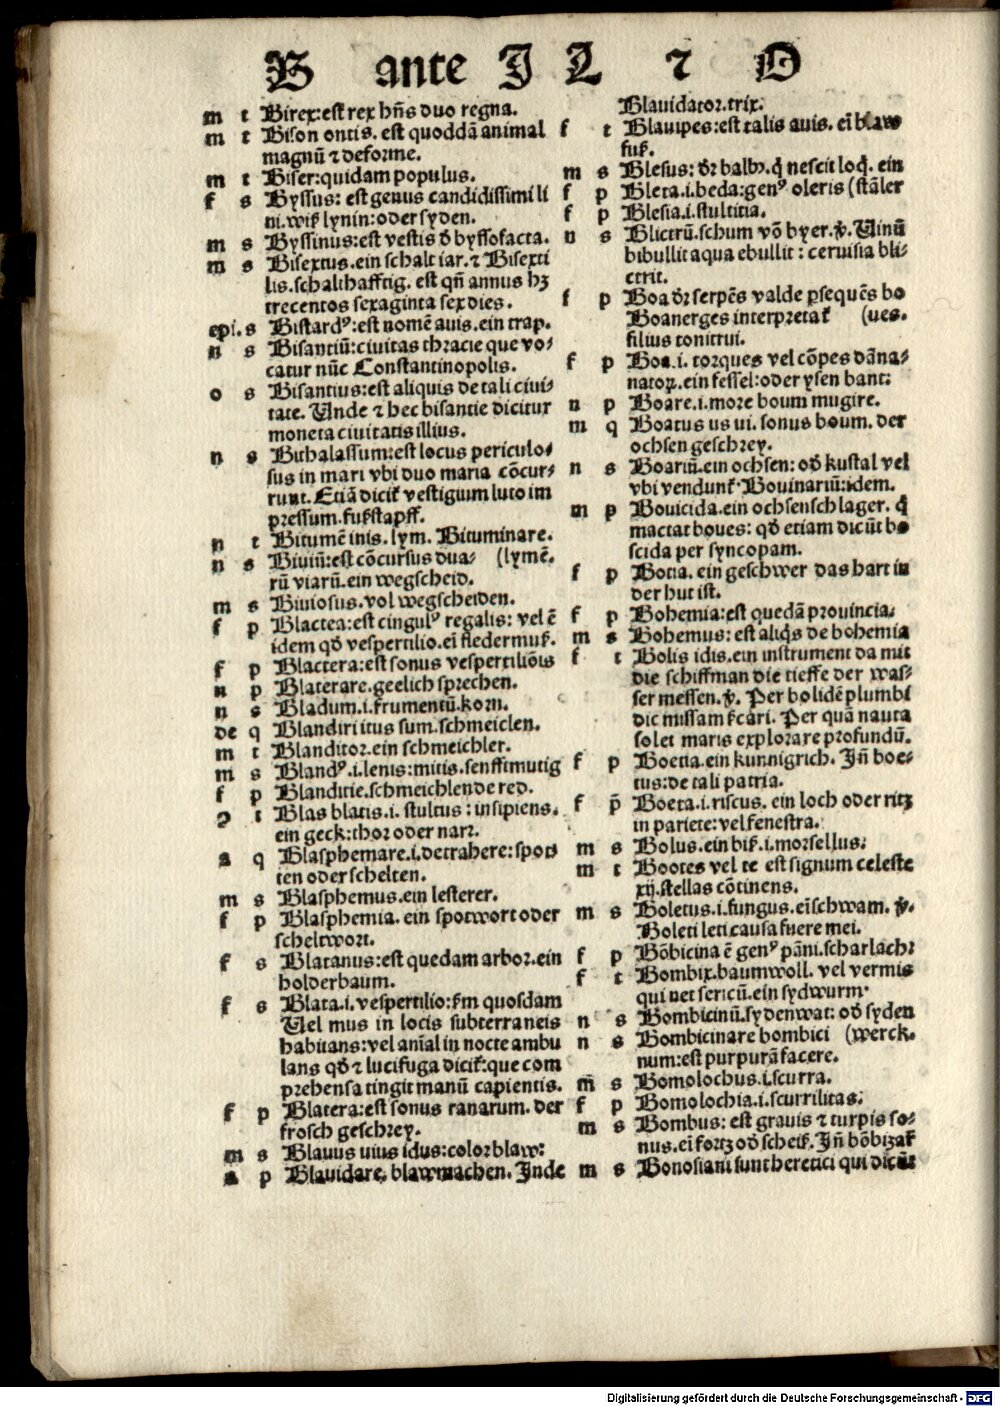 B ante I L ⁊ O
m t Birex:est rex hñs duo regna.
m t Bison ontis. est quoddã animal
magnũ ⁊ deforme.
m t Biser:quidam populus.
f s Byssus: est genus candidissimi li
ni.wiß lynin:oder syden.
m s Byssinus:est vestis ð byssofacta.
m s Bisextus.ein schalt iar.⁊ Bisexti
lis.schalthafftig. est qñ annus hꝫ
trecentos sexaginta sex dies.
epi.s Bistardꝰ:est nomẽ auis.ein trap.
n s Bisantiũ:ciuitas thracie que vo⸗
catur nũc Constantinopolis.
o s Bisantius:est aliquis de tali ciui⸗
tate. Unde ⁊ hec bisantie dicitur
moneta ciuitatis illius.
n s Bithalassum:est locus periculo⸗
sus in mari vbi duo maria cõcur⸗
runt. Etiã diciť vestigium luto im
pressum.fußstapff.
n t Bitumẽ inis. lym. Bituminare.
n s Biuiũ:est cõcursus dua⸗ (lymẽ.
rũ viarũ.ein wegscheid.
m s Biuiosus.vol wegscheiden.
f p Blactea:est cingulꝰ regalis: vel ẽ
idem qð vespertilio.eĩ fledermuß.
f p Blactera:est sonus vespertiliõis
n p Blaterare.geelich sprechen.
n s Bladum.i.frumentũ.korn.
de q Blandiri itus sum.schmeiclen.
m t Blanditor.ein schmeichler.
m s Blandꝰ.i.lenis:mitis.senfftmutig
f p Blanditie.schmeichlende red.
ꝯ t Blas blatis.i. stultus : insipiens.
ein geck:thor oder narr.
a q Blasphemare.i.detrahere:spot⸗
ten oder schelten.
m s Blasphemus.ein lesterer.
f p Blasphemia. ein spotwort oder
scheltwort.
f s Blatanus:est quedam arbor.ein
holderbaum.
f s Blata.i. vespertilio:ßm quosdam
Uel mus in locis subterraneis
habitans:vel anĩal in nocte ambu
lans qð ⁊ lucifuga diciť:que com
prehensa tingit manũ capientis.
f p Blatera:est sonus ranarum. der
frosch geschrey.
m s Blauus uius idus:color blaw:
a p Blauidare. blaw machen. Inde
Blauidator.trix.
f t Blauipes:est talis auis. eĩ blaw
fuß.
m s Blesus: ðr balbꝰ.q̃ nescit loq̃. ein
f p Bleta.i.beda:genꝰ oleris (stãler
f p Blesia.i.stultitia.
n s Blictrũ.schum võ byer.ꝟ. Uinũ
bibullit aqua ebullit : ceruisia bli⸗
ctrit.
f p Boa ðr serpẽs valde ꝑsequẽs bo
Boanerges interpretať (ues.
filius tonitrui.
f p Boa.i. torques vel cõpes dãna⸗
natoꝝ.ein fessel:oder ysen bant:
n p Boare.i.more boum mugire.
m q Boatus us ui. sonus boum. der
ochsen geschrey.
n s Boariũ.ein ochsen: oð kustal vel
vbi vendunť. Bouinariũ:idem.
m p Bouicida.ein ochsenschlager. q̃
mactat boues: qð etiam dicũt bo
scida per syncopam.
f p Bocia. ein geschwer das hart in
der hut ist.
f p Bohemia:est quedã prouincia.
m s Bohemus: est aliq̃s de bohemia
f t Bolis idis.ein instrument da mit
die schiffman die tieffe der was⸗
ser messen.ꝟ. Per bolidẽ plumbi
dic missam ßcari. Per quã nauta
solet maris explorare profundũ.
f p Boetia.ein kunnigrich. Iñ boe⸗
tus:de tali patria.
f p̃ Boeta.i.riscus. ein loch oder ritz
in pariete:vel fenestra.
m s Bolus.ein biß.i.morsellus.
m t Bootes vel te est signum celeste
xij.stellas cõtinens.
m s Boletus.i.fungus.eĩschwam. ꝟ.
Boleti leti causa fuere mei.
f p Bõbicina ẽ genꝰ pãni.scharlach:
f t Bombix.baumwoll. vel vermis
qui net sericũ.ein sydwurm.
n s Bombicinũ.sydenwat: oð syden
n s Bombicinare bombici (werck.
num:est purpurã facere.
m̃ s Bomolochus.i.scurra.
f p Bomolochia.i.scurrilitas.
m s Bombus: est grauis ⁊ turpis so⸗
nus.eĩ fortz oð scheiß. Iñ bõbizať
m s Bonosiani sunt heretici qui dicũt
Digitalisierung gefördert durch die Deutsche Forschungsgemeinschaft - DFG